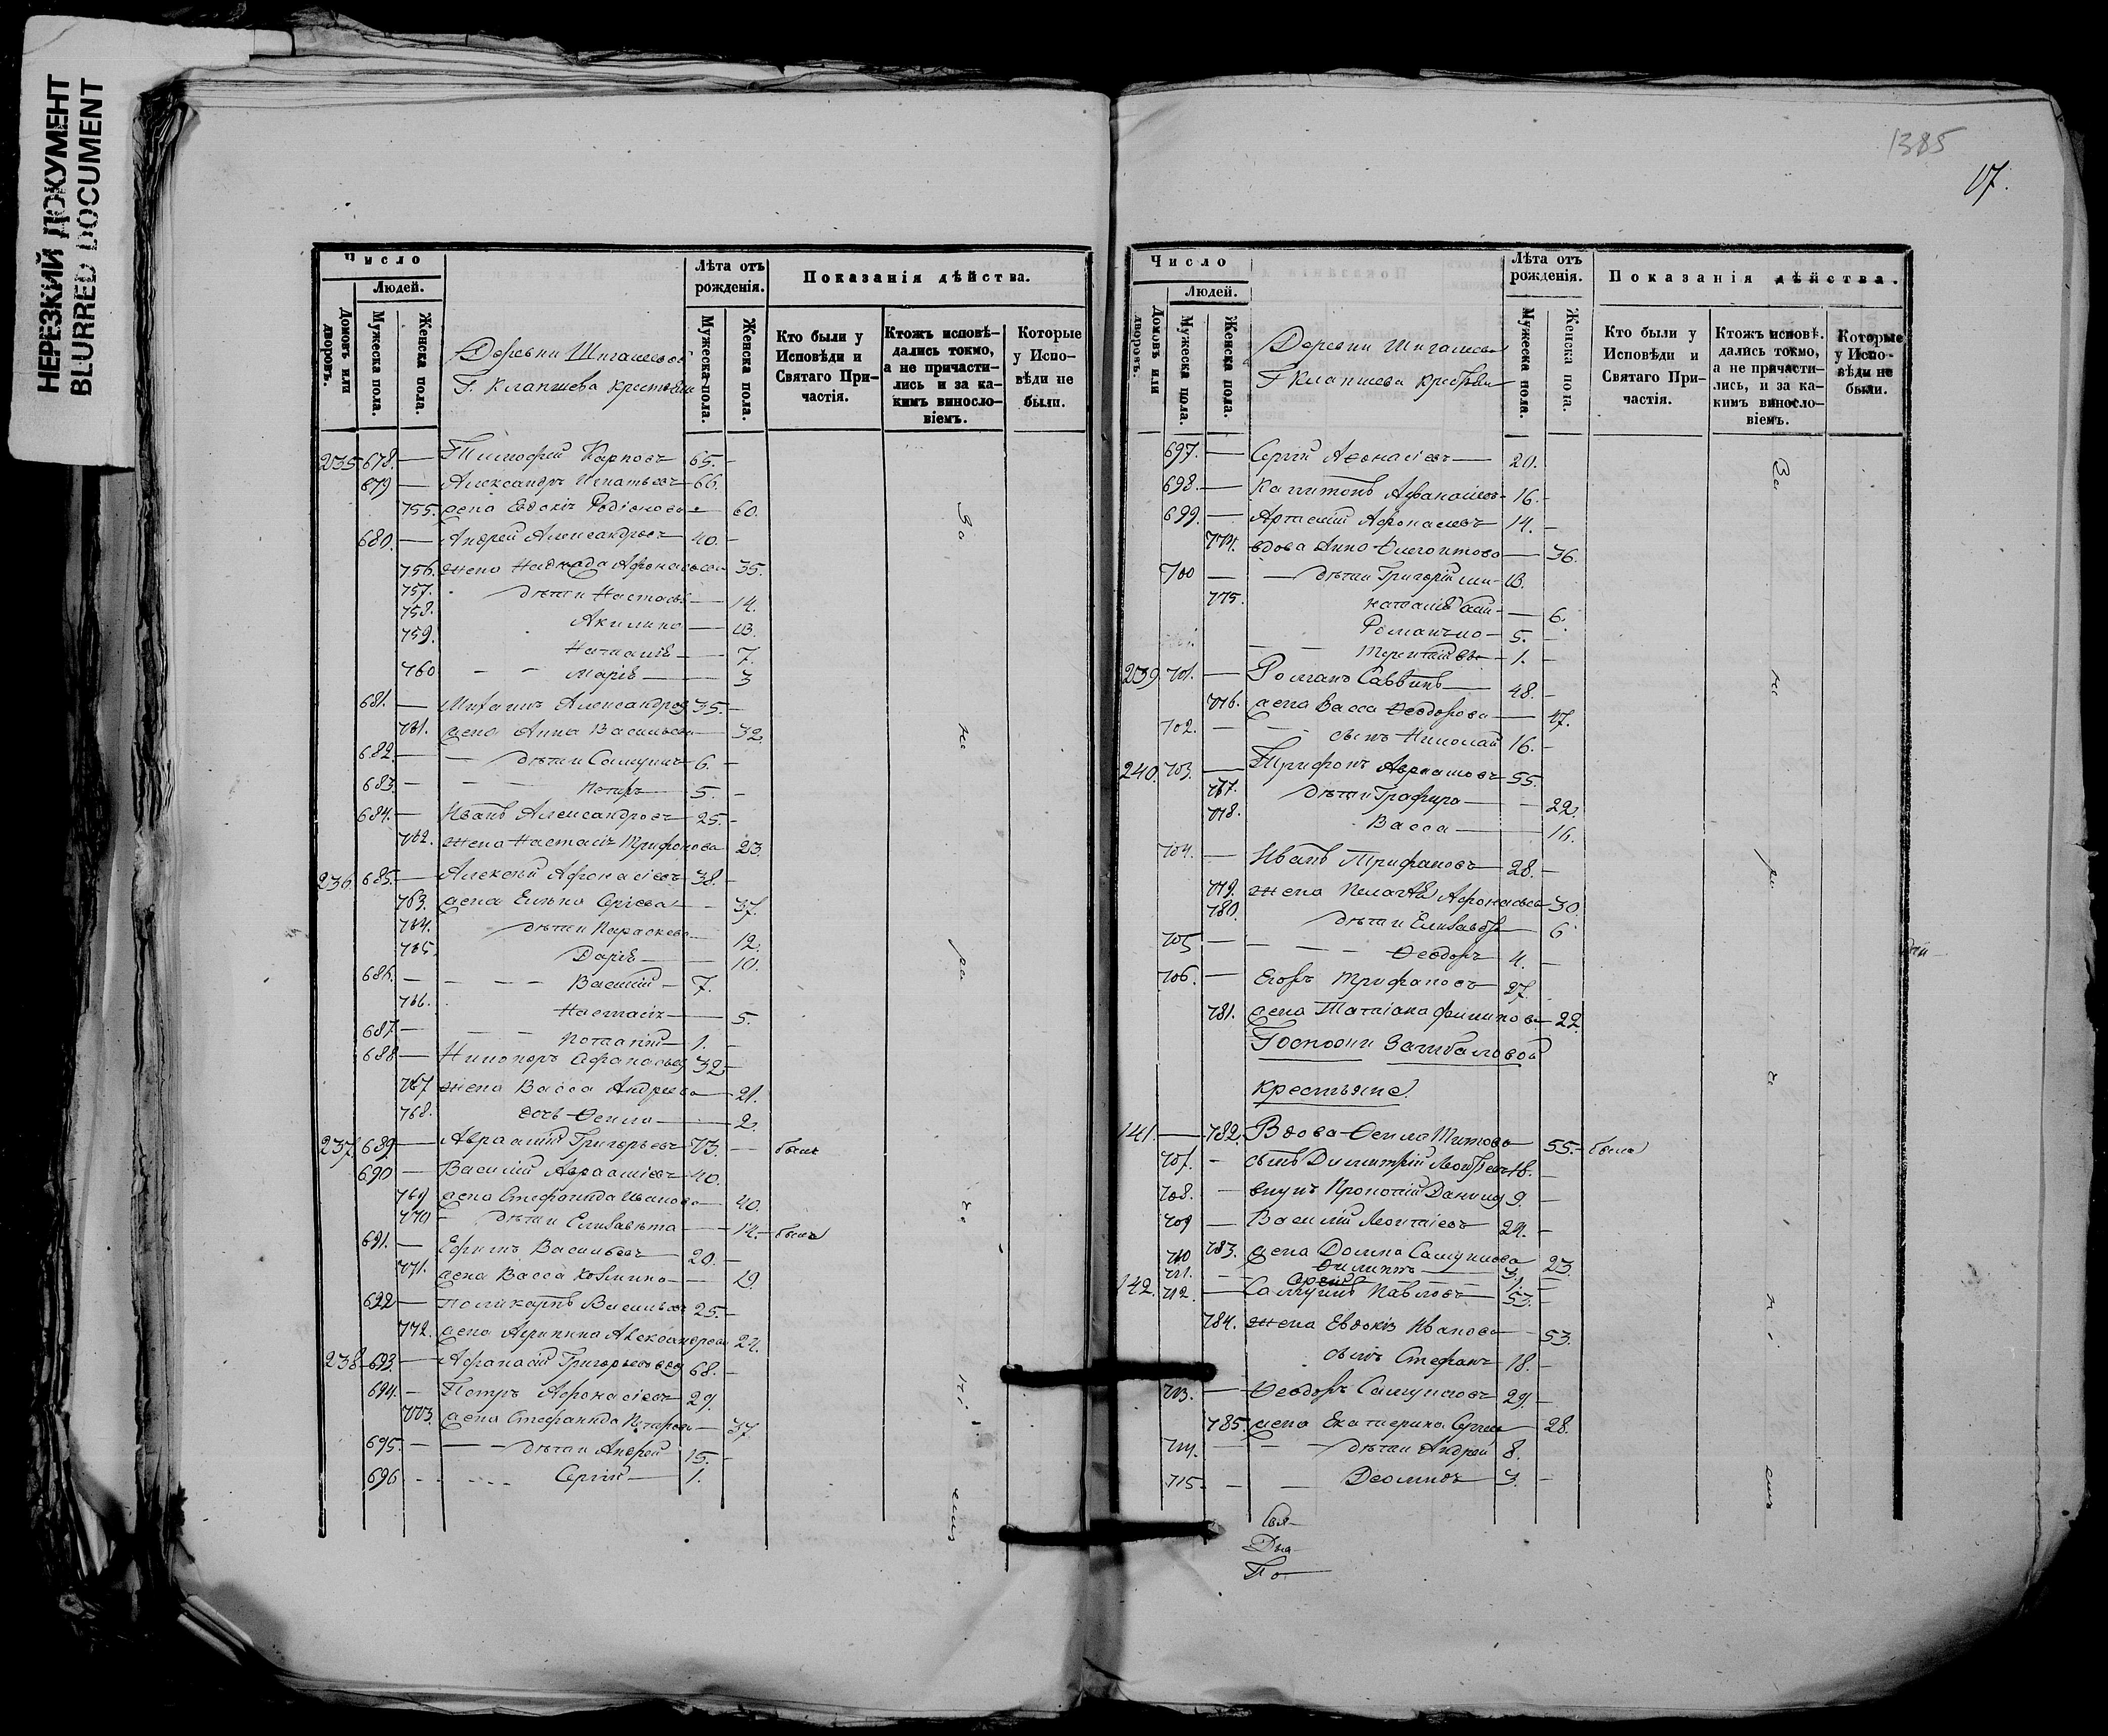 НЕРЕЗКИЙ ДОКУМЕНТ
BLURRED DOCUMENT
Число
Людей.
Домовъ или дворовъ.
Мужеска пола.
Женска пола.
Деревни Шигашевой
Г. Клапшева крестьян
Лѣта отъ рожденія.
Мужеска пола.
Женска пола.
Показанія дѣйства.
Кто были у Исповѣди и Святаго При-частія.
Ктожъ исповѣ-дались токмо, а не причасти-лись и за ка-кимъ винosло-віемъ.
Которые у Испо-вѣди не были.
235 678. — Тимофей Карповъ 65. -
679 — Александръ Игнатьевъ 66.
755. жена Евдокія Родіонова — 60.
680. — Андрей Александровъ 40. -
756. жена Надежда Афонасьева 35.
757. дѣти Настасья — 14.
758. Акилина — 13.
759. Наталія — 7.
760 - - Марія — 3
681. — Михаилъ Александров 35. -
761. жена Анна Васильева — 32
682. — дѣти Самуилъ 6. -
683. - - Петръ 5. -
684. — Иванъ Александровъ 25. -
762. жена Настасія Трифонова 23.
236 685. — Алексѣй Афонасіевъ 38. -
763. жена Елена Сергіева — 37.
764. дѣти Параскева — 12
765. Дарія — 10.
686. - - - - Василій — 7.
766. Настасія — 5.
687 - - - Потапій 1. -
688 — Никифоръ Афанасьев 32 -
767 жена Васса Андреева — 21.
768. дочь Ѳекла — 2.
237 689 — Авраамій Григорьевъ 73. — былъ
690 — Василій Авраамієвъ 40.
769 жена Стефанида Иванова — 40.
770 - дѣти Елизавета — 14. — была
691. — Ефимъ Васильевъ 20. -
771. жена Васса Козмина — 19
692 — Поликарпъ Васильевъ 25. -
772. жена Агрипина Александрова 24.
238 693 — Афанасій Григорьевъ 68. -
694. - Петръ Афонасіевъ 29.
773. жена Стефанида Петрова — 37.
695. - — дѣти Андрей 15. -
696 - - - - - Сергій — 1.
За не ра че ні емъ
1385
17.
Число
Людей.
Домовъ или дворовъ.
Мужеска пола.
Женска пола.
Деревни Шигашевой
Г Клапшева крестьян
Лѣта отъ рожденія.
Мужеска пола.
Женска пола.
Показанія дѣйства.
Кто были у Исповѣди и Святаго При-частія.
Ктожъ исповѣ-дались токмо, а не причасти-лись, и за ка-кимъ винosло-віемъ.
Которые у Испо-вѣди не были.
697. — Сергій Аѳонасіевъ — 20.
698. — Капитонъ Афанасіевъ 16. -
699 — Артемій Афонасіевъ 14. -
774. вдова Анна — 36.
700 — — дѣти Григорій 13.
775. Наталія — 6.
Романъ 5. -
Терентій 1. -
239 701. — Романъ Саввинъ 48. -
776. жена Васса Ѳеодорова — 47.
702. - - сынъ Николай 16. -
240. 703. — Трифонъ 55.
767. дѣти Графира — 22.
778. Васса — 16.
704. — Иванъ Трифановъ 28. -
779. жена Пелагея Афонасьева 30
780. дѣти Елизавета — 6
705 - - - - Ѳеодоръ 4. -
706. — Егоръ Трифановъ 27.
781. жена Татіана Филипова — 22
Госпожи Замбаловой
крестьяне
141. — 782. Вдова Ѳекла Титова 55. — была
707. - сынъ Димитрій Леонтьевъ 18. -
708. - внукъ Прокопій Данилов 9. -
709 — Василій Леонтіевъ 24. -
783. жена Домна Самуилова 23.
710 Филиппъ — 3. -
711. - - Сергій 1. -
142. 712. — Самуилъ Павловъ 53. -
784. жена Евдокія Иванова 53.
сынъ Стефанъ 18. -
713. — Ѳеодоръ Самуиловъ 29. -
785. жена Екатерина Сергіева 28.
714. — - дѣти Андрей 8.
715. - - Диомидъ 3. -
За не ра че ні емъ
Свя-
Діа
По-